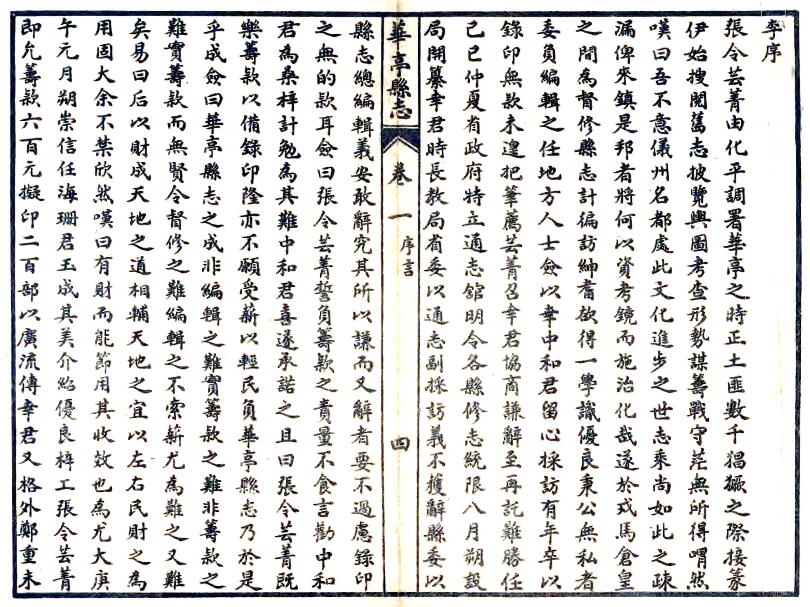 李序
張令芸菁由化平調署華亭之時正土匪數千猖獗之際接篆
伊始搜閱舊志披覽輿圖考查形勢謀籌戰守茫無所得喟然
嘆曰吾不意儀州名都處此文化進步之世志乘尚如此之疎
漏俾來鎮是邦者將何以資考鏡而施治化哉遂於戎馬倉皇
之間為督修縣志計徧訪紳耆欲得一學識優良秉公無私者
委負編輯之任地方人士僉以幸中和君留心採訪有年卒以
錄印無款未遑把筆薦芸菁召幸君協商謙辭至再託難勝任
己巳仲夏省政府特立通志館明令各縣修志統限八月朔設
局開纂幸君時長教局省委以通志副採訪義不獲辭縣委以
華亭縣志 卷一 序言 四
縣志總編輯義安敢辭究其所以謙而又辭者要不過慮錄印
之無的款耳僉曰張令芸菁誓負籌款之責量不食言勸中和
君為桑梓計勉為其難中和君喜遂承諾之且曰張令芸菁既
樂籌款以備錄印隆亦不願受薪以輕民負華亭縣志乃於是
乎成僉曰華亭縣志之成非編輯之難實籌款之難非籌款之
難實籌款而無賢令督修之難編輯之不索薪尤為難之又難
矣易曰后以財成天地之道相輔天地之宜以左右民財之為
用固大余不禁欣然嘆曰有財而能節用其收效也為尤大庚
午元月朔崇信任海珊君玉成其美介紹優良梓工張令芸菁
即允籌款六百元擬印二百部以廣流傳幸君又格外鄭重未